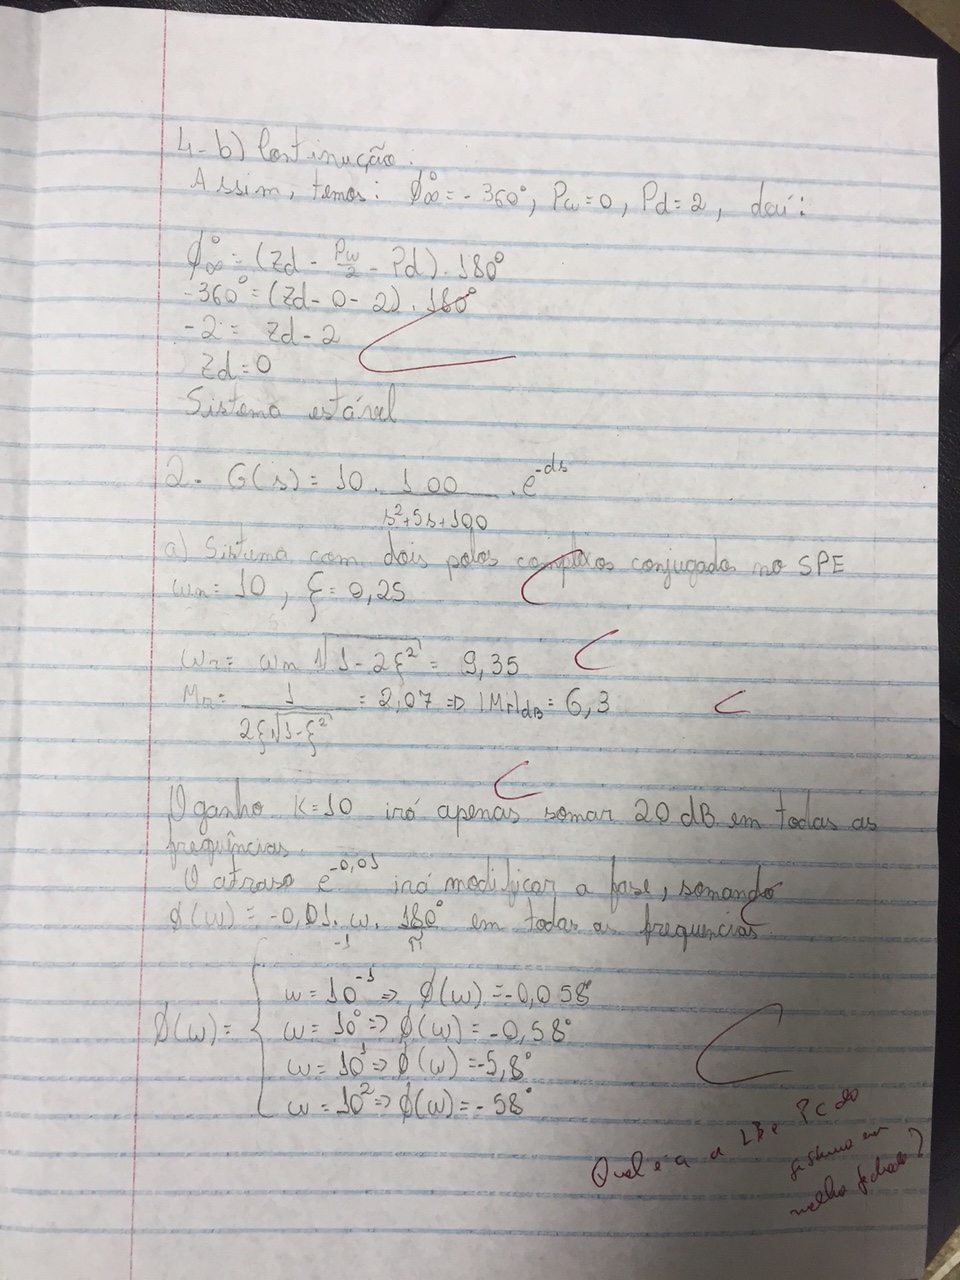 4-b) Continuação.
Assim, temos: ϕ∞° = -360°, Pω=0, Pd=2, daí:
ϕ∞° = (Zd - Pω/2 - Pd).180°
-360° = (Zd - 0 - 2).180°
-2 = Zd - 2
Zd = 0
Sistema estável
2- G(s) = 10. 100/(s²+5s+100) .e^-ds
a) Sistema com dois polos complexos conjugados no SPE
ωn = 10, ξ = 0,25
ωr = ωn √(1-2ξ²) = 9,35
Mr = 1/(2ξ√(1-ξ²)) = 2,07 => |Mr|dB = 6,3
O ganho K=10 irá apenas somar 20 dB em todas as
frequências.
O atraso e^-0,01 irá modificar a fase, somando
ϕ(ω) = -0,01.ω. 180°/π em todas as frequencias.
-1
ω = 10^-1 => ϕ(ω) = -0,058°
ϕ(ω) = { ω = 10^0 => ϕ(ω) = -0,58°
ω = 10^1 => ϕ(ω) = -5,8°
ω = 10^2 => ϕ(ω) = -58°
Qual é a LB e Pc do
sistema em
malha fechada?